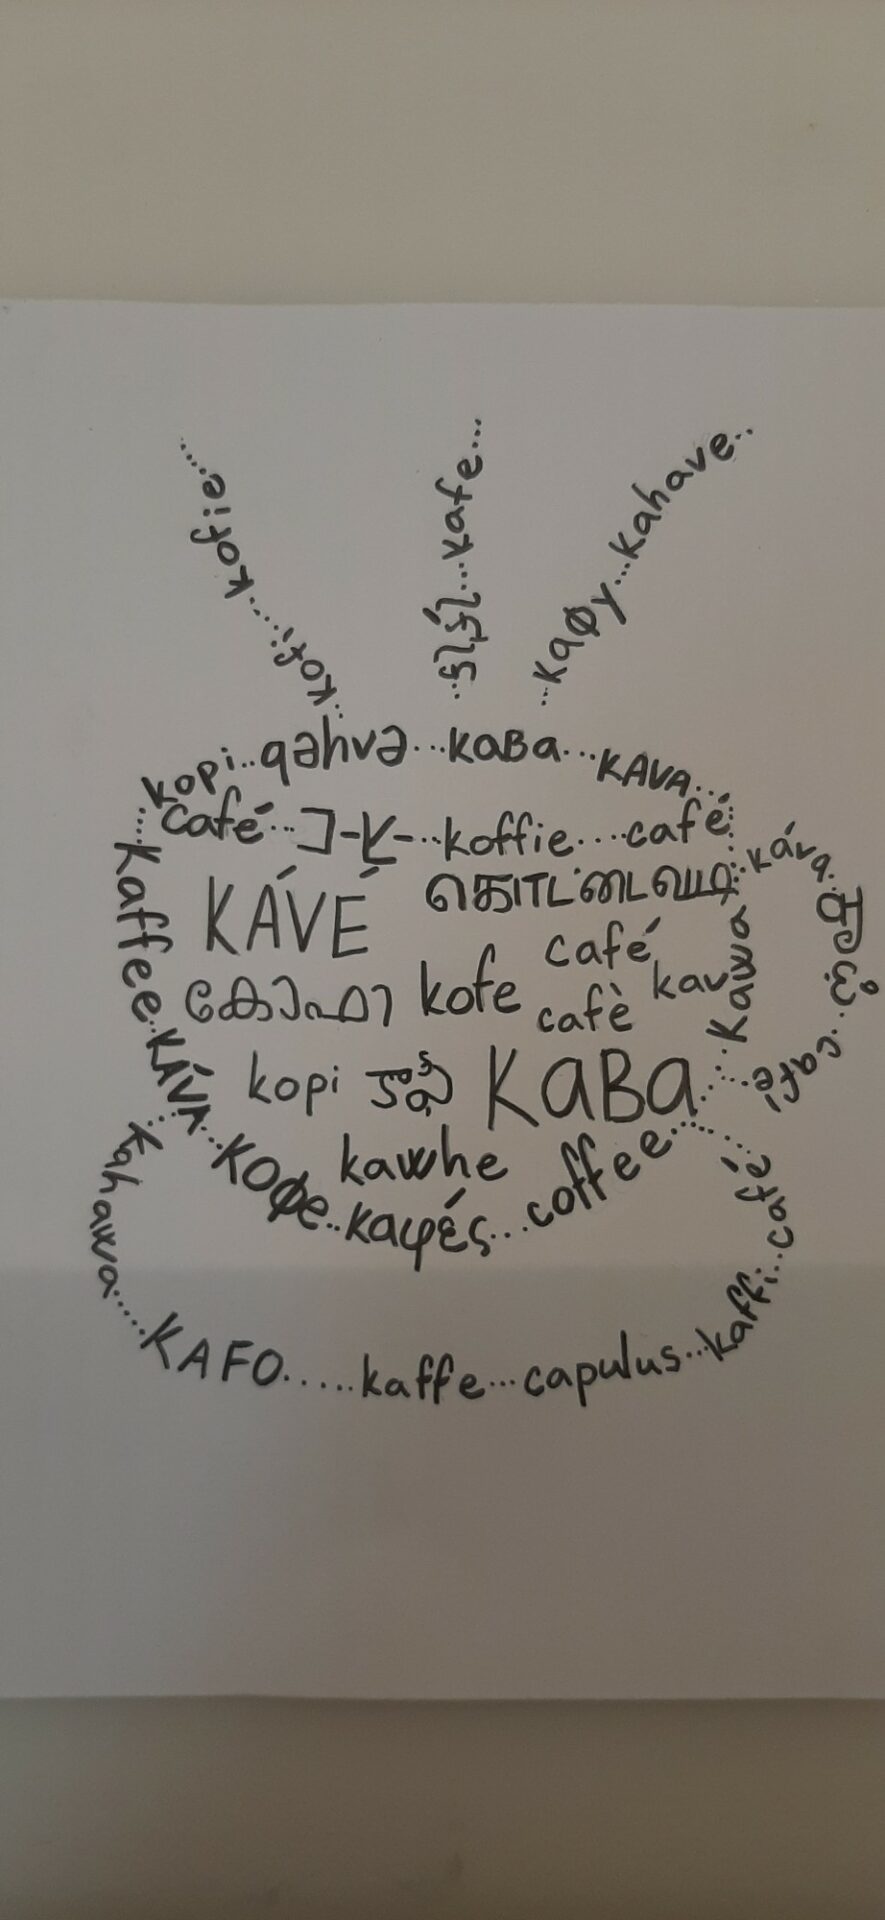 kofie
kofi
kafe
кафу...kahave
kopi..qəhvə...каBа...KAVA
café...コーヒー...koffie....café
káva
Kaffee
KÁVÉ
café
kawa
kofe
cafè
café
KÁVA
kopi
KaBa
kahawa
кофе
kawhe
καφές...coffee
café
kaffi
KAFO.....kaffe...capulus